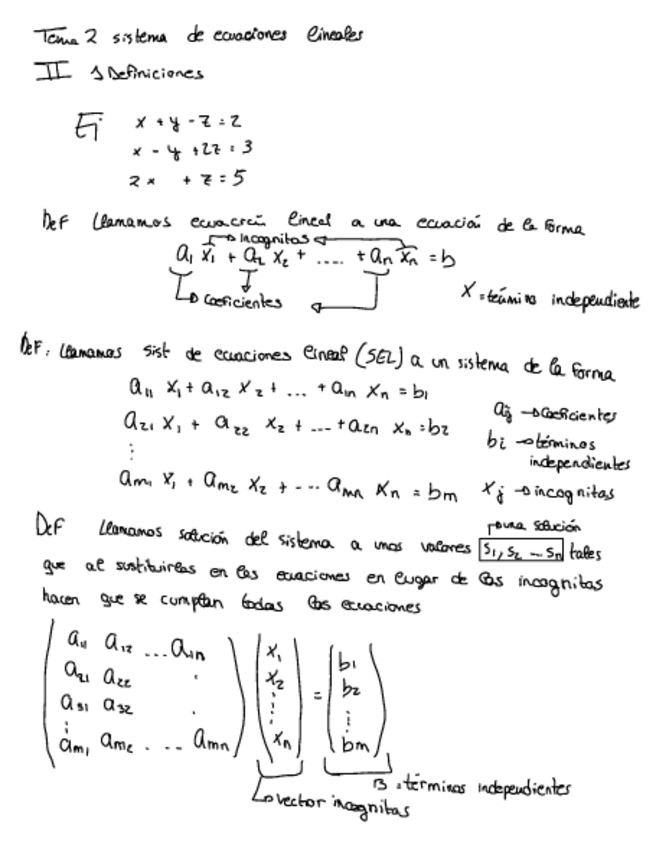 Tema 2 sistema de ecuaciones lineales
II 1 Definiciones
Ej x + y - z = 2
x - y + 2z = 3
2x + z = 5
Def Llamamos ecuación lineal a una ecuación de la forma
Incognitas
a₁ x₁ + a₂ x₂ + ..... + aₙ xₙ = b
Coeficientes
X = término independiente
Def: Llamamos sist de ecuaciones lineal (SEL) a un sistema de la forma
a₁₁ x₁ + a₁₂ x₂ + ... + a₁ₙ xₙ = b₁
a₂₁ x₁ + a₂₂ x₂ + ... + a₂ₙ xₙ = b₂
⋮
aₘ₁ x₁ + aₘ₂ x₂ + --- aₘₙ xₙ = bₘ
aᵢⱼ → coeficientes
bᵢ → términos
independientes
xⱼ → incognitas
una solución
Def Llamamos solución del sistema a unos valores s₁, s₂ ... sₙ tales
que al sustituirlas en las ecuaciones en lugar de las incognitas
hacen que se cumplan todas las ecuaciones
a₁₁ a₁₂ ... a₁ₙ x₁ b₁
a₂₁ a₂₂ . x₂ = b₂
a₃₁ a₃₂ . ⋮ ⋮
⋮
aₘ₁ aₘ₂ . ... aₘₙ xₙ bₘ
B = términos independientes
vector incognitas